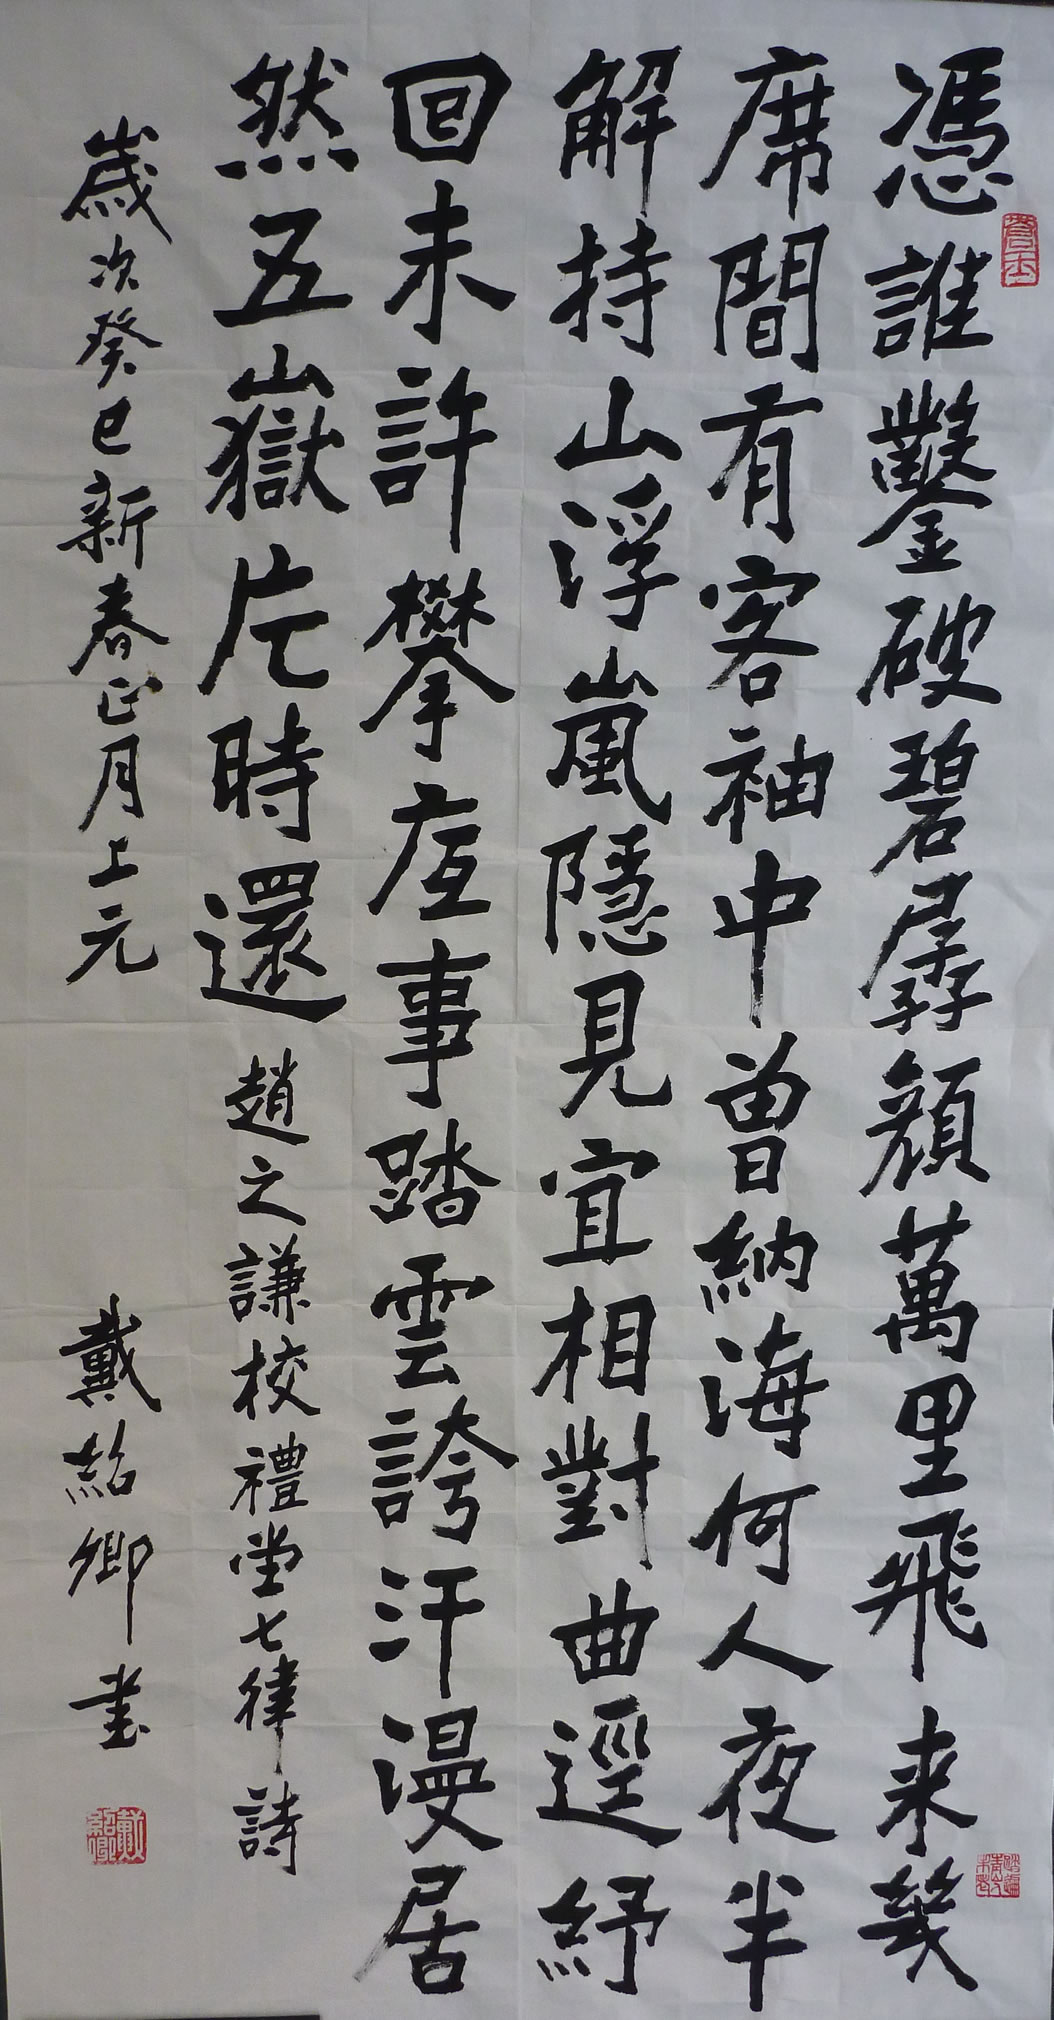 憑誰鑿破碧孱顏萬里飛来幾
席間有客袖中曽納海何人夜半
解持山浮嵐隱見宜相對曲逕紆
回未許攀底事踏雲誇汗漫居
然五嶽片時還
趙之謙校禮堂七律詩
歲次癸巳新春正月上元
戴紹卿書